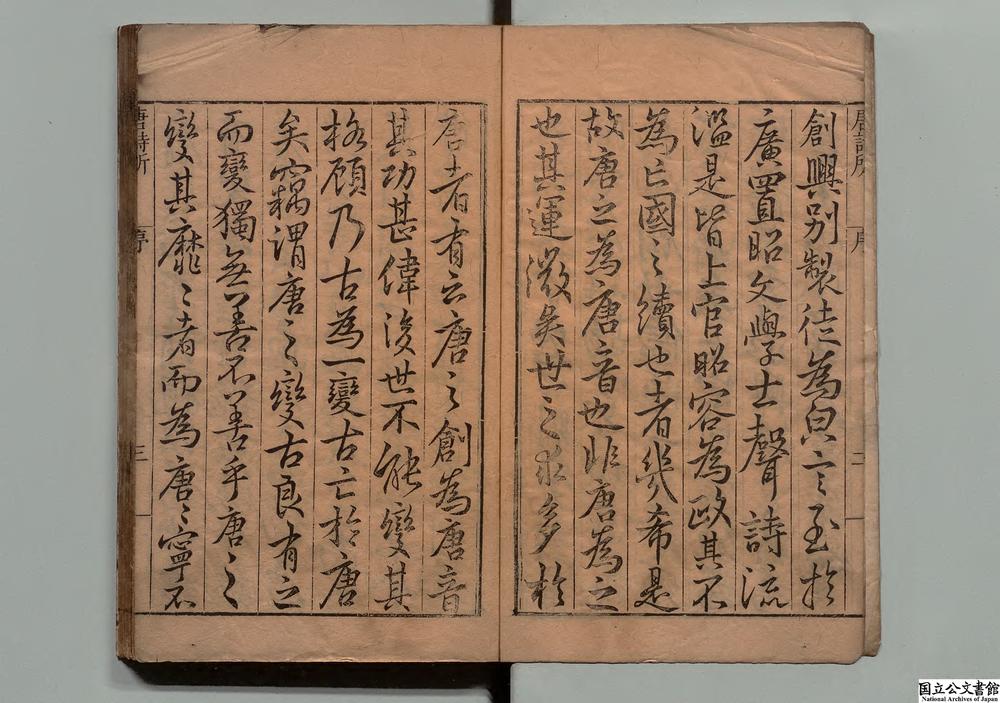 唐詩所 序 二
創興別製徒為臭之至於
廣置昭文學士聲詩流
濫是皆上官昭容為政其不
為亡國之續也者幾希是
故唐之為唐音也非唐為之
也其運微矣世之求多於
唐者有云唐之創為唐音
其功甚偉後世不能變其
格顧乃古為一變古亡於唐
矣竊謂唐之變古良有之
而變獨無善不善乎唐之
變其靡〻者而為唐〻寧不
唐詩所 序 三
国立公文書館
National Archives of Japan